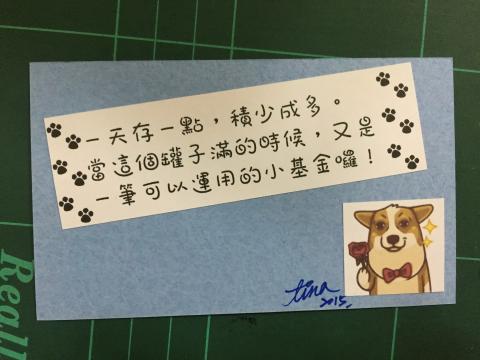 一天存一點，積少成多。
當這個罐子滿的時候，又是
一筆可以運用的小基金囉！
tina
2015.
Reall